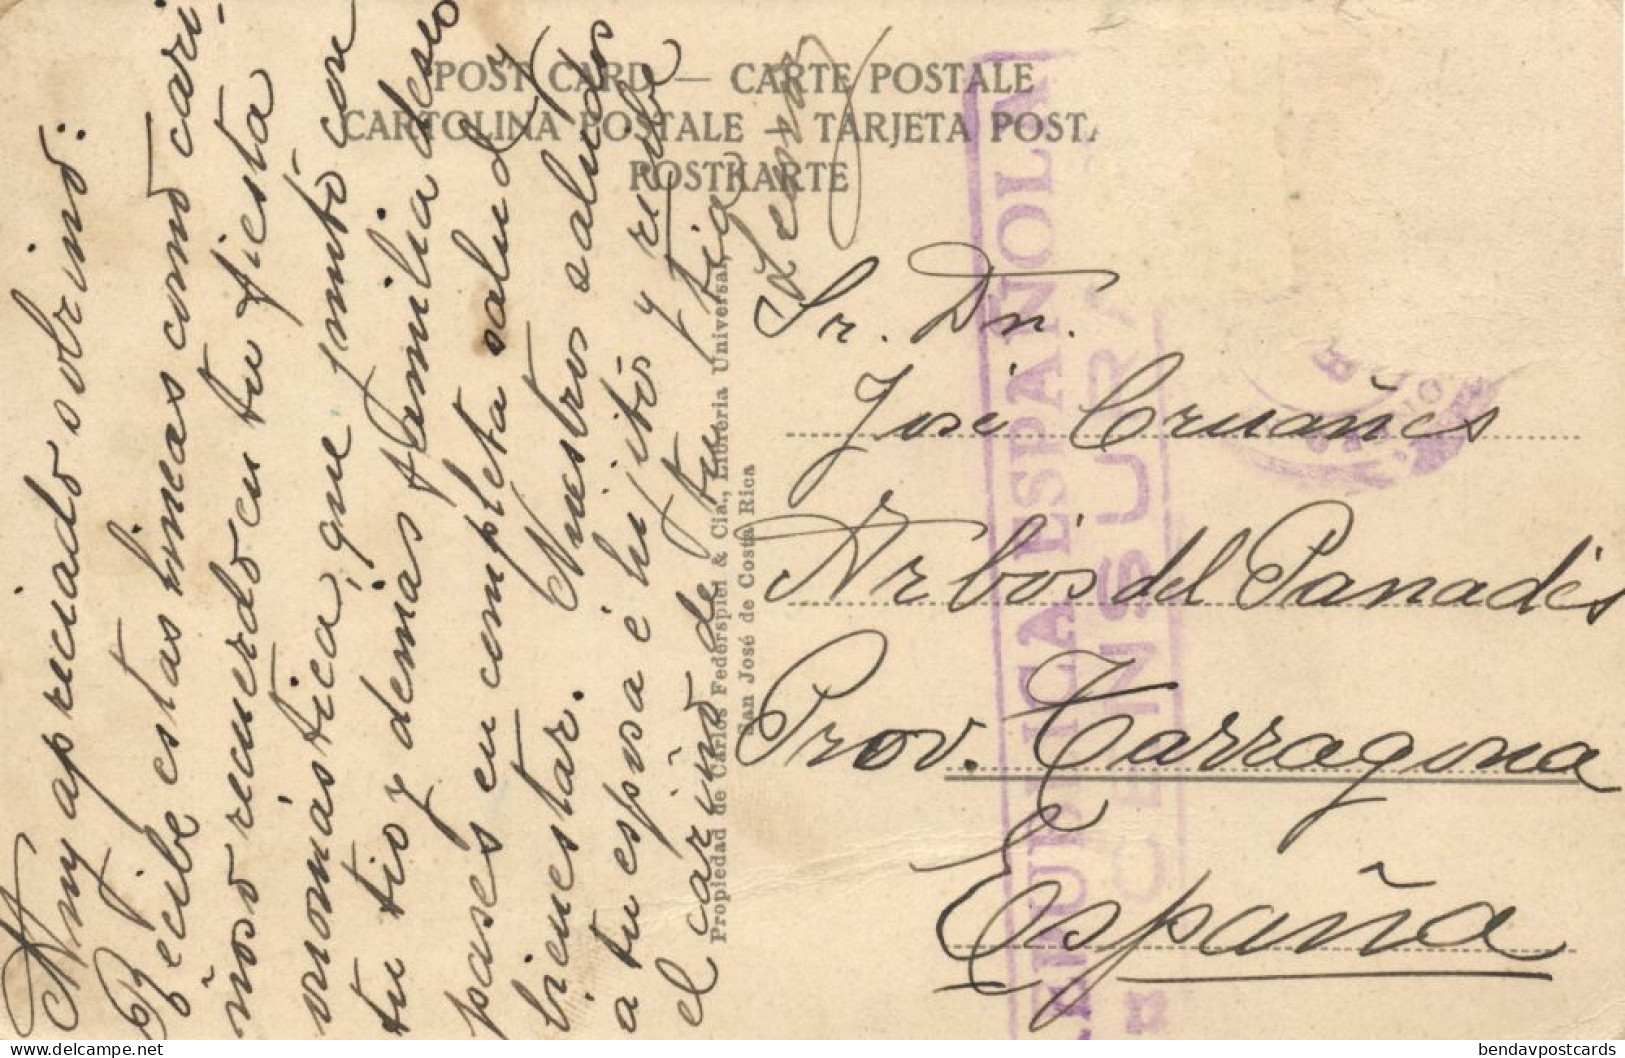 POST CARD — CARTE POSTALE
CARTOLINA POSTALE — TARJETA POSTA
POSTKARTE
Muy apreciado sobrino:
Recibe estas lineas como cari-
ñoso recuerdo en tu fiesta
onomástica, que junto con
tu tio y demás familia deseo
pases en completa salud y
bienestar. Nuestros saludos
a tu esposa é hijitos y recibe
el cariño de tu tia
Propiedad de Carlos Federspiel & Cia., Librería Universal,
San José de Costa Rica
Sr. Dn.
José Cruañes
Arbós del Panadés
Prov. Tarragona
España
REPUBLICA ESPAÑOLA
CENSURA
bendavpostcards